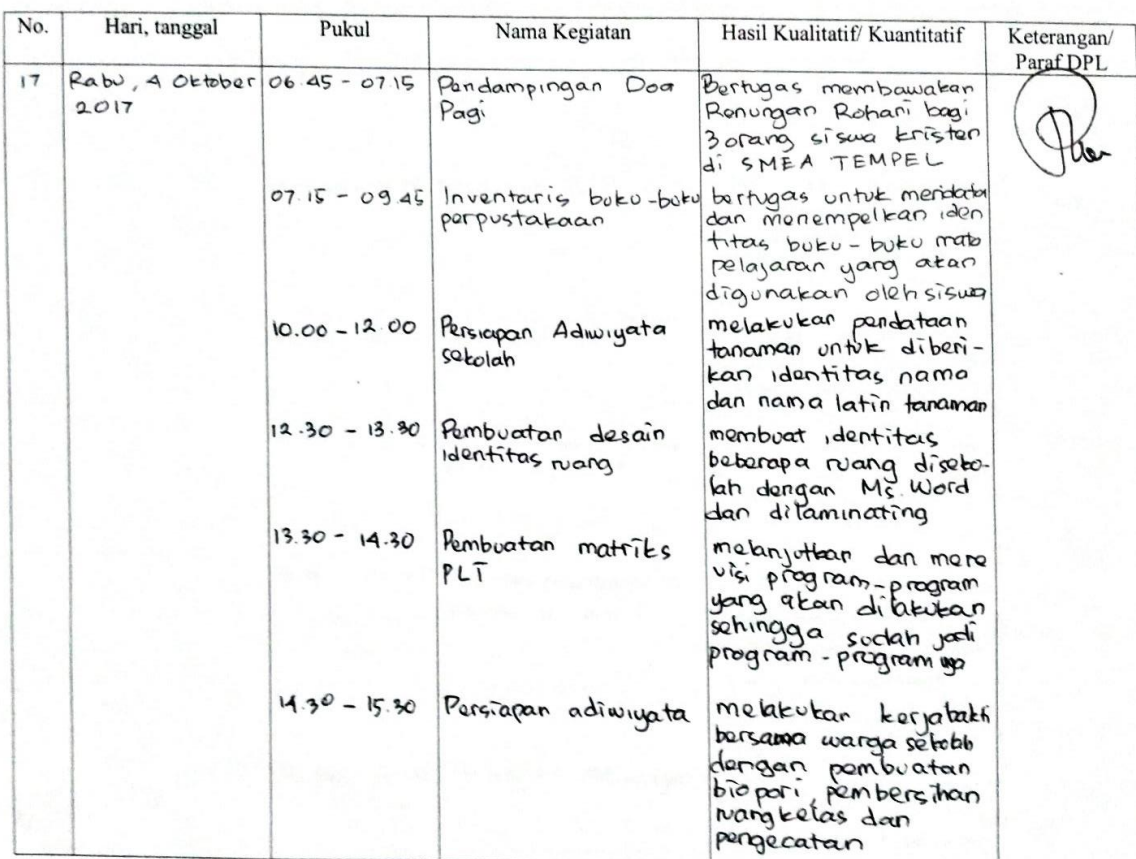 No. Hari, tanggal Pukul Nama Kegiatan Hasil Kualitatif/ Kuantitatif Keterangan/
Paraf DPL
17 Rabu, 4 Oktober 06.45 - 07.15 Pendampingan Doa Bertugas membawakan
2017 Pagi Renungan Rohani bagi
3 orang siswa kristen
di SMEA TEMPEL
07.15 - 09.45 Inventaris buku-buku bertugas untuk mendata
perpustakaan dan menempelkan iden
titas buku - buku mata
pelajaran yang akan
digunakan oleh siswa
10.00 - 12.00 Persiapan Adiwiyata melakukan pendataan
sekolah tanaman untuk diberi-
kan identitas nama
dan nama latin tanaman
12.30 - 13.30 Pembuatan desain membuat identitas
identitas ruang beberapa ruang diseko-
lah dengan Ms. Word
dan dilaminating
13.30 - 14.30 Pembuatan matriks melanjutkan dan mere
PLT visi program-program
yang akan dilakukan
sehingga sudah jadi
program-program
14.30 - 15.30 Persiapan adiwiyata melakukan kerjabakti
bersama warga sekolah
dengan pembuatan
biopori, pembersihan
ruang kelas dan
pengecatan